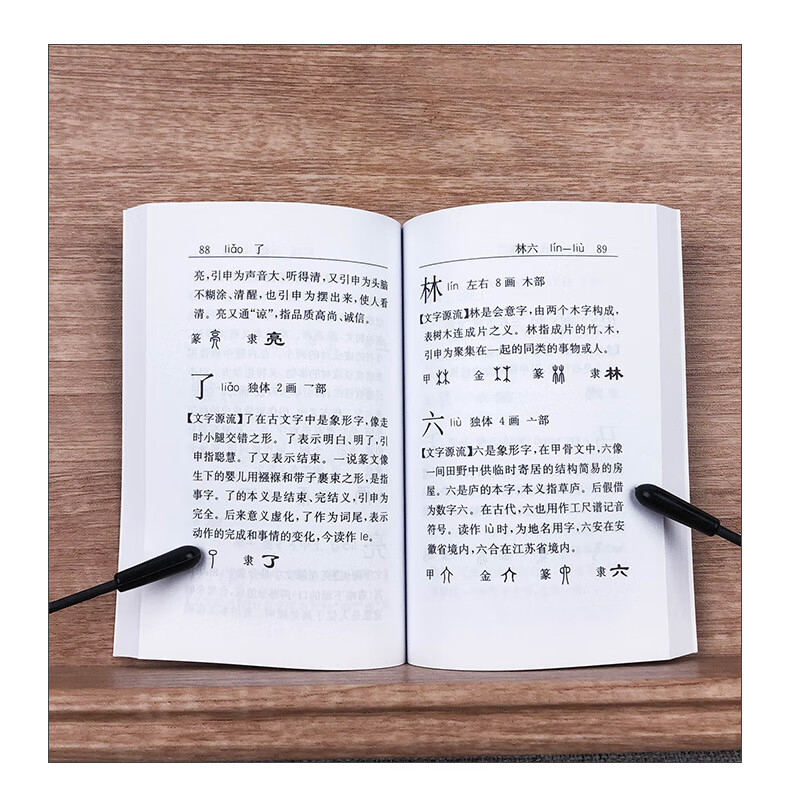 88 liǎo 了
亮,引申为声音大、听得清,又引申为头脑
不糊涂、清醒,也引申为摆出来,使人看
清。亮又通“谅”,指品质高尚、诚信。
篆 隶 亮
了 liǎo 独体 2画 乛部
【文字源流】了在古文字中是象形字,像走
时小腿交错之形。了表示明白、明了,引
申指聪慧。了又表示结束。一说篆文像
生下的婴儿用襁褓和带子裹束之形,是指
事字。了的本义是结束、完结义,引申为
完全。后来意义虚化,了作为词尾,表示
动作的完成和事情的变化,今读作 le。
隶 了
林六 lín—liù 89
林 lín 左右 8画 木部
【文字源流】林是会意字,由两个木字构成,
表树木连成片之义。林指成片的竹、木,
引申为聚集在一起的同类的事物或人。
甲 金 篆 隶 林
六 liù 独体 4画 亠部
【文字源流】六是象形字,在甲骨文中,六像
一间田野中供临时寄居的结构简易的房
屋。六是庐的本字,本义指草庐。后假借
为数字六。在古代,六也用作工尺谱记音
符号。读作 lù 时,为地名用字,六安在安
徽省境内,六合在江苏省境内。
甲 金 篆 隶 六